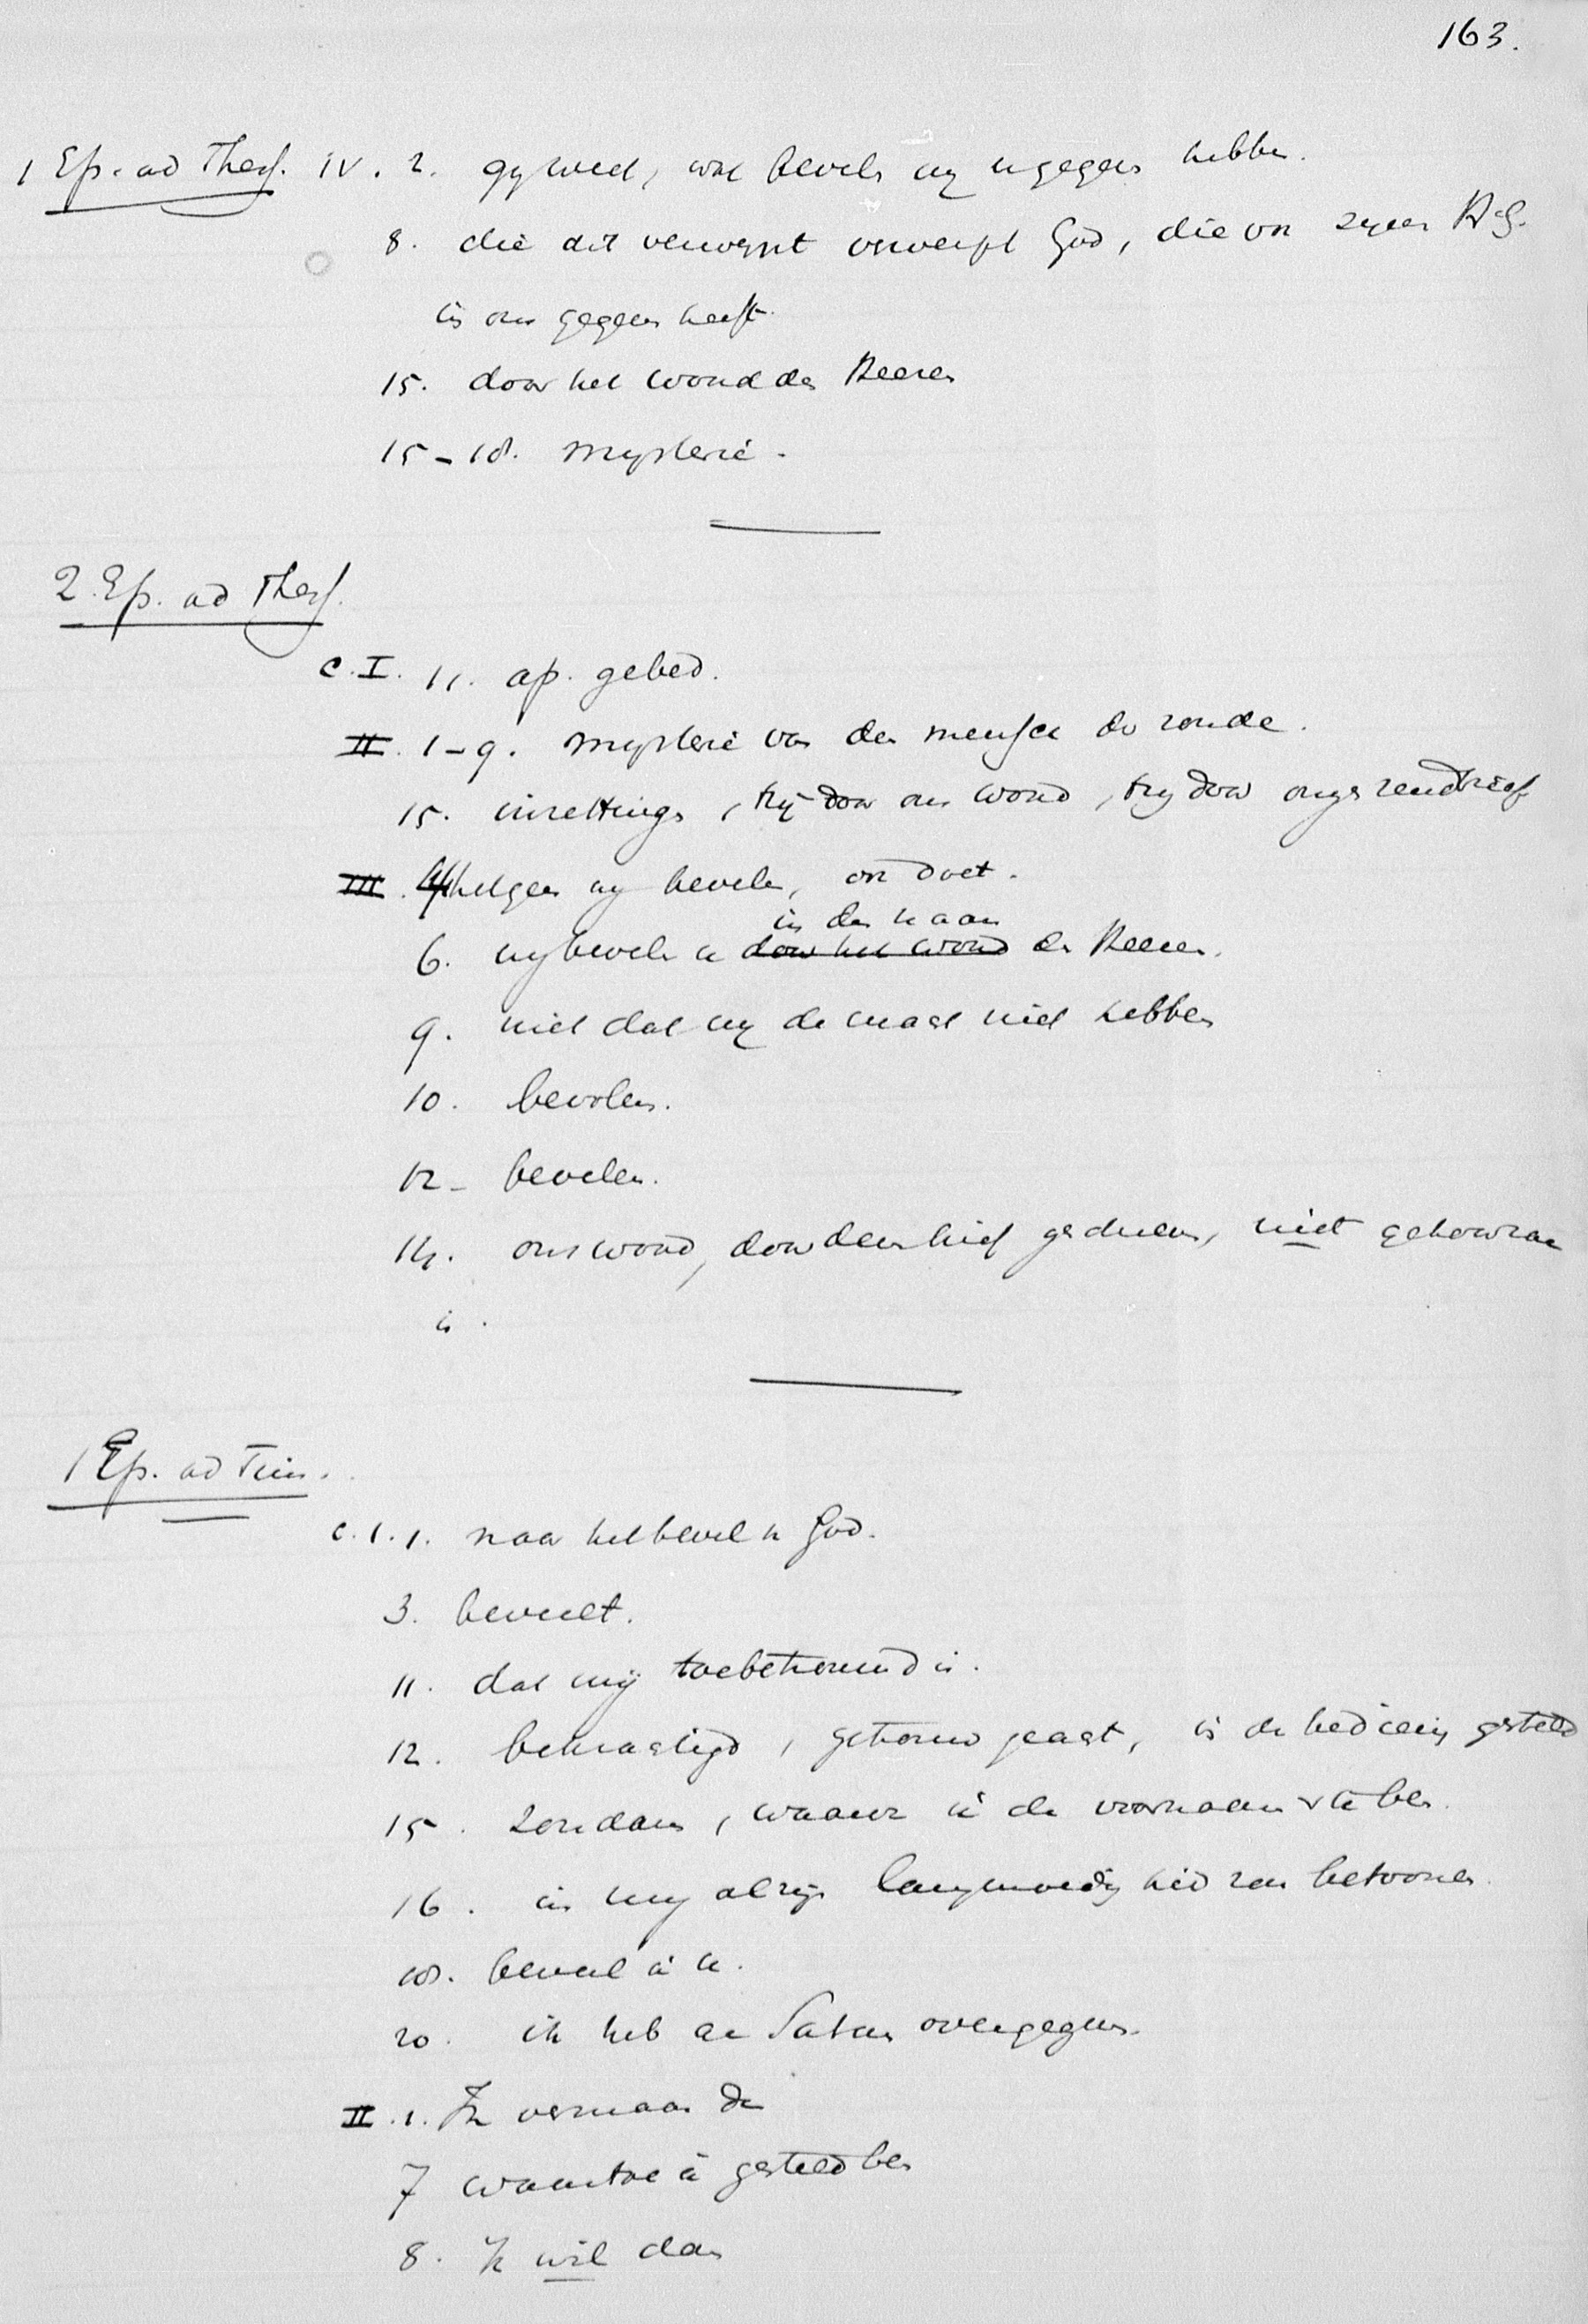 163.
1 Ep. ad Thess. IV. 2. gy weet, wat bevelen wy u gegeven hebben.
8. die dit verwerpt verwerpt God, die ook zynen H. G.
in ons gegeven heeft.
15. door het woord des Heeren
15-18. mysterie.
2. Ep. ad Thess.
c. I. 11. ap. gebed.
II. 1-9. mysterie van den mensch der zonde.
15. inzettingen, 'tzy door ons woord, 'tzy door onzen zendbrief
III. 4. hetgeen wy bevelen, ook doet.
in den naam
6. wy bevelen u door het woord des Heeren.
9. niet dat wy de macht niet hebben
10. bevolen.
12. bevelen.
14. ons woord, door dezen brief geschreven, niet gehoorzaam
is.
1 Ep. ad Tim.
c. 1. 1. naar het bevel v. God.
3. beveelt.
11. dat mij toebetrouwd is.
12. bekrachtigd, getrouw geacht, in de bediening gesteld
15. zondaren, waarvan ik de voornaamste ben.
16. in my al zijn langmoedigheid zou betoonen.
18. beveel ik u.
20. ik heb den Satan overgegeven.
II. 1. Ik vermaan dan
7 waartoe ik gesteld ben
8. Ik wil dan